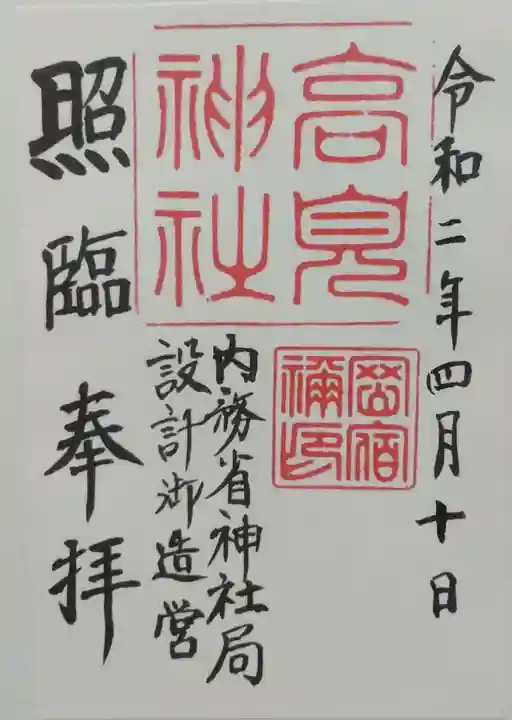 令和二年四月十日
高見
神社
岡宿
禰印
内務省神社局
設計御造営
照臨奉拝